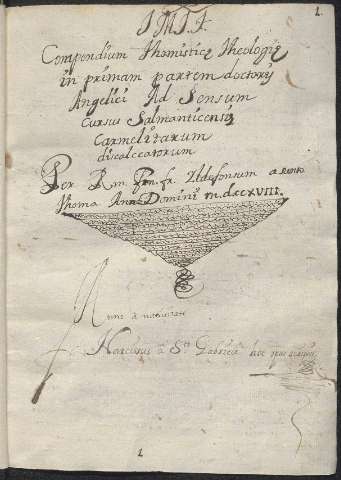 1.
J M J T
Compendium Thomisticę Theologię
in primam partem doctoris
Angelici Ad Sensum
Cursus Salmanticensis
Carmelitarum
discalceatorum
Per Rm. Pm. fr. Ildefonsum a Sancto
Thoma Anno Domini m.dccXVIII.
Narcisus â Sto Gabriele hoc
1